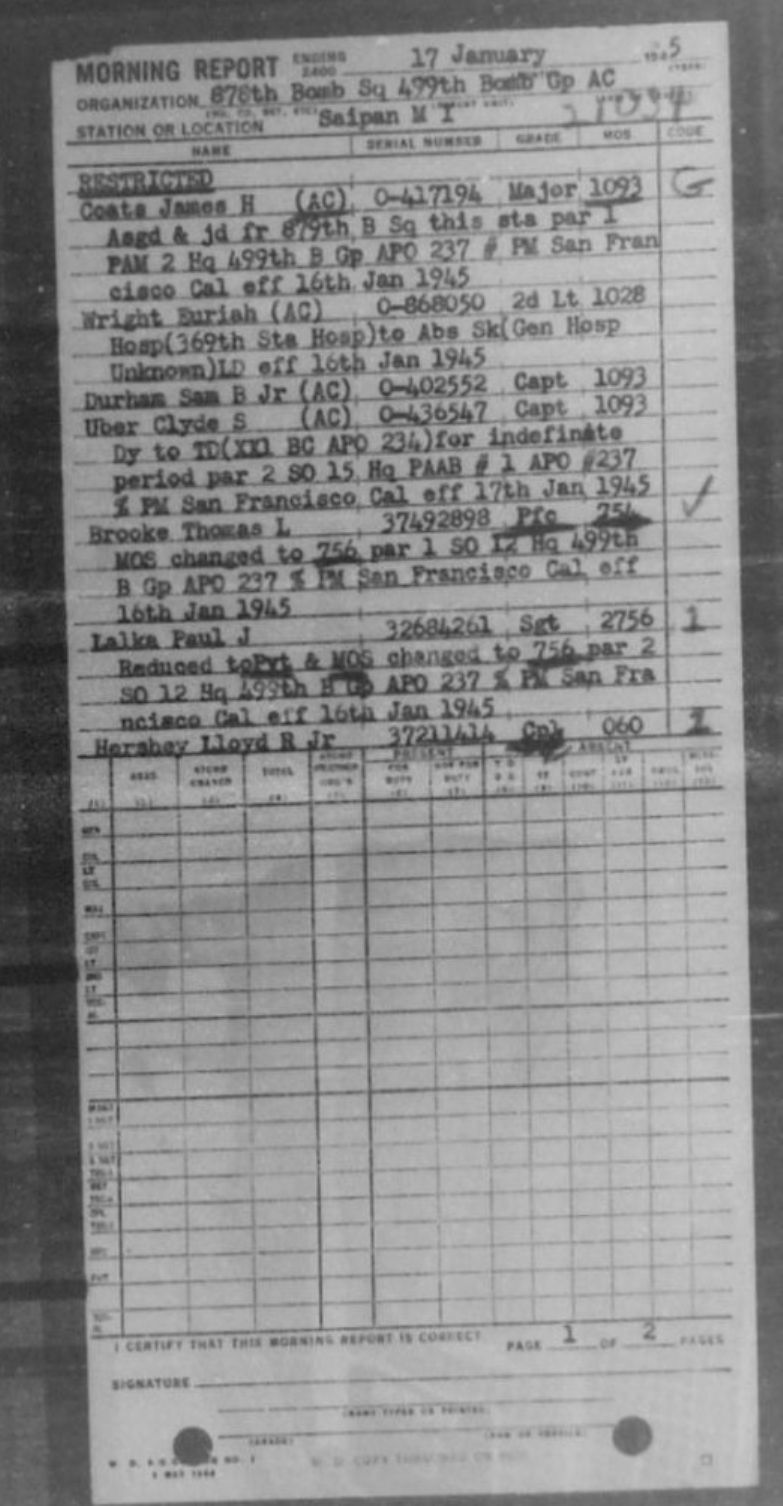 MORNING REPORT ENDING 2400 17 January 1945
ORGANIZATION 878th Bomb Sq 499th Bomb Gp AC
STATION OR LOCATION Saipan M I
NAME SERIAL NUMBER GRADE MOS CODE
RESTRICTED
Coats James H (AC) O-417194 Major 1093 G
Asgd & jd fr 879th B Sq this sta par 1
PAM 2 Hq 499th B Gp APO 237 # PM San Fran
cisco Cal eff 16th Jan 1945
Wright Euriah (AC) O-868050 2d Lt 1028
Hosp(369th Sta Hosp)to Abs Sk(Gen Hosp
Unknown)LD eff 16th Jan 1945
Durham Sam B Jr (AC) O-402552 Capt 1093
Uber Clyde S (AC) O-436547 Capt 1093
Dy to TD(XXI BC APO 234)for indefinate
period par 2 SO 15 Hq PAAB # 1 APO #237
% PM San Francisco Cal eff 17th Jan 1945
Brooke Thomas L 37492898 Pfc 754 ✓
MOS changed to 756 par 1 SO 12 Hq 499th
B Gp APO 237 % PM San Francisco Cal eff
16th Jan 1945
Lalka Paul J 32684261 Sgt 2756 1
Reduced toPvt & MOS changed to 756 par 2
SO 12 Hq 499th B Gp APO 237 % PM San Fra
ncisco Cal eff 16th Jan 1945
Hershey Lloyd R Jr 37211414 Cpl 060 1
PRESENT ABSENT
TOTAL
I CERTIFY THAT THIS MORNING REPORT IS CORRECT PAGE 1 OF 2 PAGES
SIGNATURE
(NAME TYPED OR PRINTED)
(GRADE)